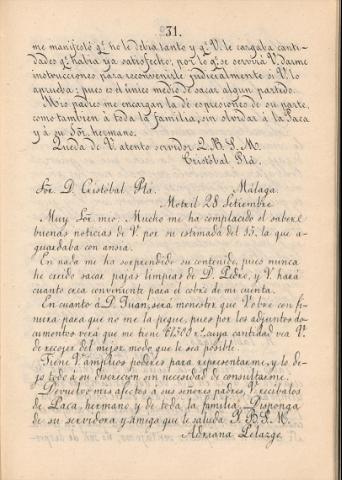 31.
me manifestó q.e no le debia tanto y q.e V. le cargaba canti-
dades q.e habia ya satisfecho; por lo q.e se servirá V. darme
instrucciones para reconvenirle judicialmente si V. lo
aprueba; pues es el único medio de sacar algun partido.
Mis padres me encargan la dé espresiones de su parte,
como tambien á toda la familia, sin olvidar á la Paca
y á su Sor. hermano.
Queda de V. atento servidor Q. B. S. M.
Cristóbal Plá.
Sor. D. Cristóbal Plá. Málaga.
Motril 28 Setiembre
Muy Sor. mio. Mucho me ha complacido el saber
buenas noticias de V. por su estimada del 15, la que a-
guardaba con ansia.
En nada me ha sorprendido su contenido, pues nunca
he creido sacar pajas limpias de D. Pedro, y V. hará
cuanto crea conveniente para el cobro de mi cuenta.
En cuanto á D. Juan, será menester que V. obre con fi-
nura para que no me la pegue, pues por los adjuntos do-
cumentos verá que me tiene cuya cantidad vea V.
de recojer del mejor modo que le sea posible.
Tiene V. amplios poderes para representarme, y lo de-
jo todo á su discrecion sin necesidad de consultarme.
Devuelvo mis afectos á sus señores padres, V. recíbalos
de Paca, hermano y de toda la familia. Disponga
de su servidora y amiga que le saluda. Q. B. S. M.
Adriana Pelazge